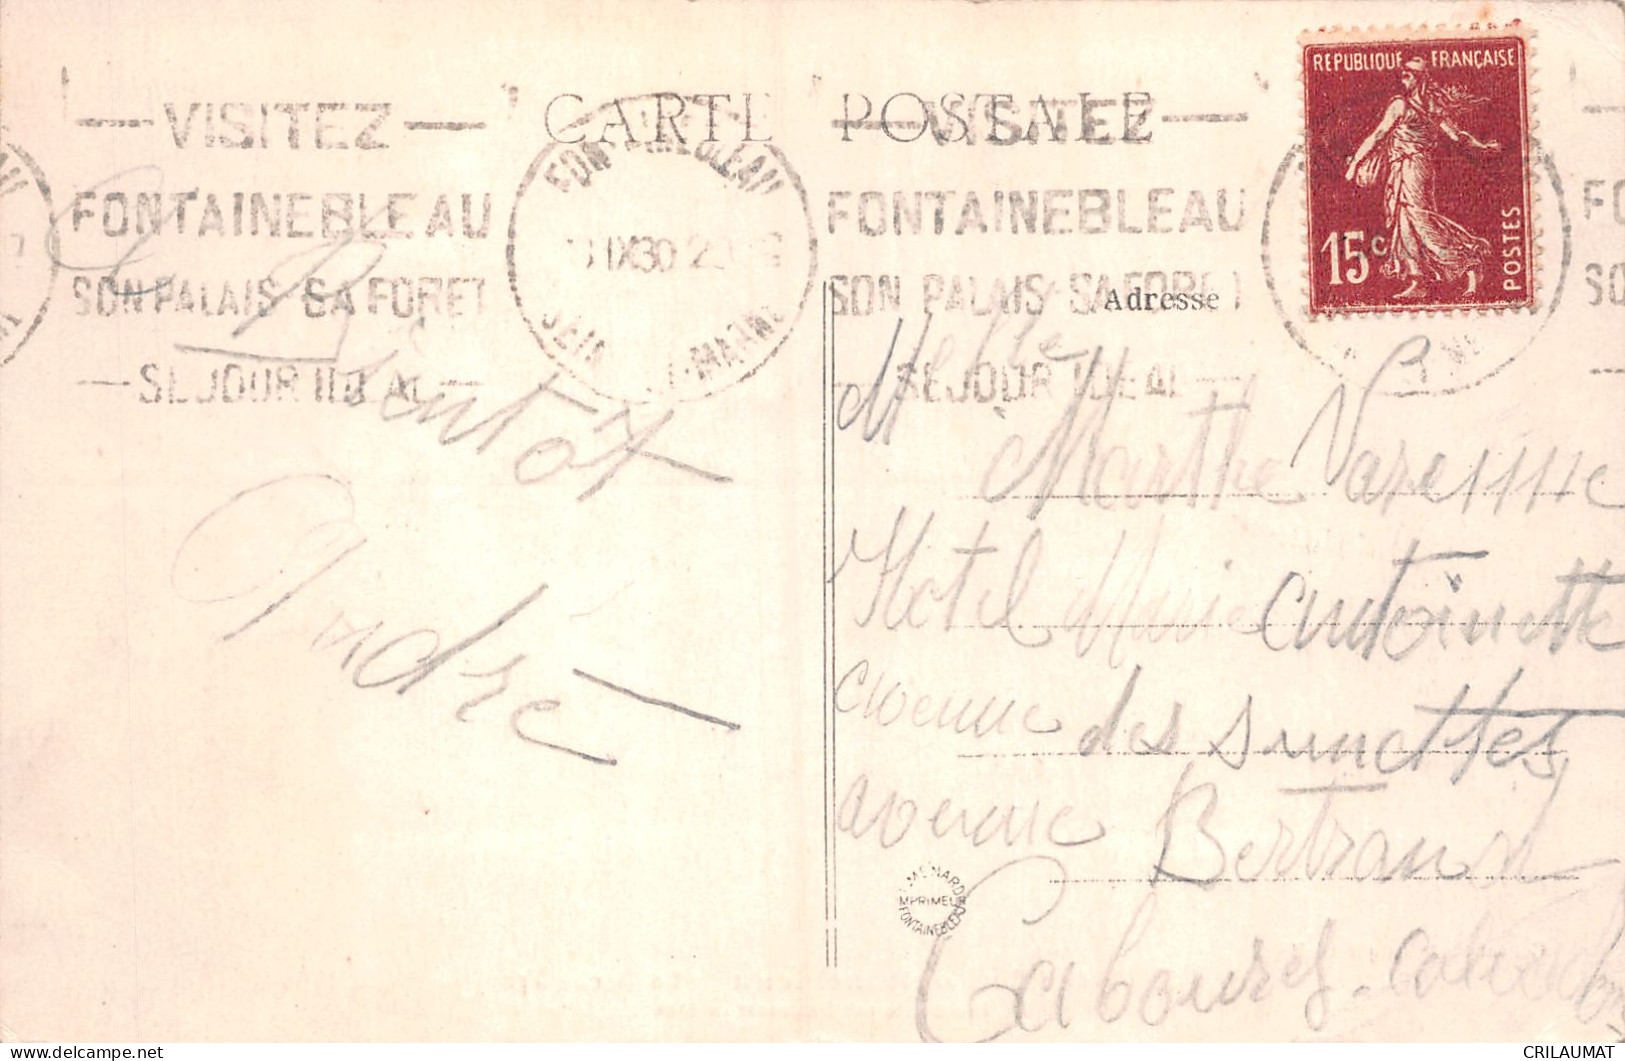 CARTE POSTALE
VISITEZ
FONTAINEBLEAU
SON PALAIS SA FORET
SEJOUR IDEAL
FONTAINEBLEAU
IX 30
SEINE ET MARNE
VISITEZ
FONTAINEBLEAU
SON PALAIS SA FORET
SEJOUR IDEAL
REPUBLIQUE FRANÇAISE
15c
POSTES
à Bientôt
André
Adresse
Melle
Marthe Varenne
Hotel Marie antoinette
avenue des
avenue Bertrand
Cabourg. Calvados
MENARD
IMPRIMEUR
FONTAINEBLEAU
CRILAUMAT